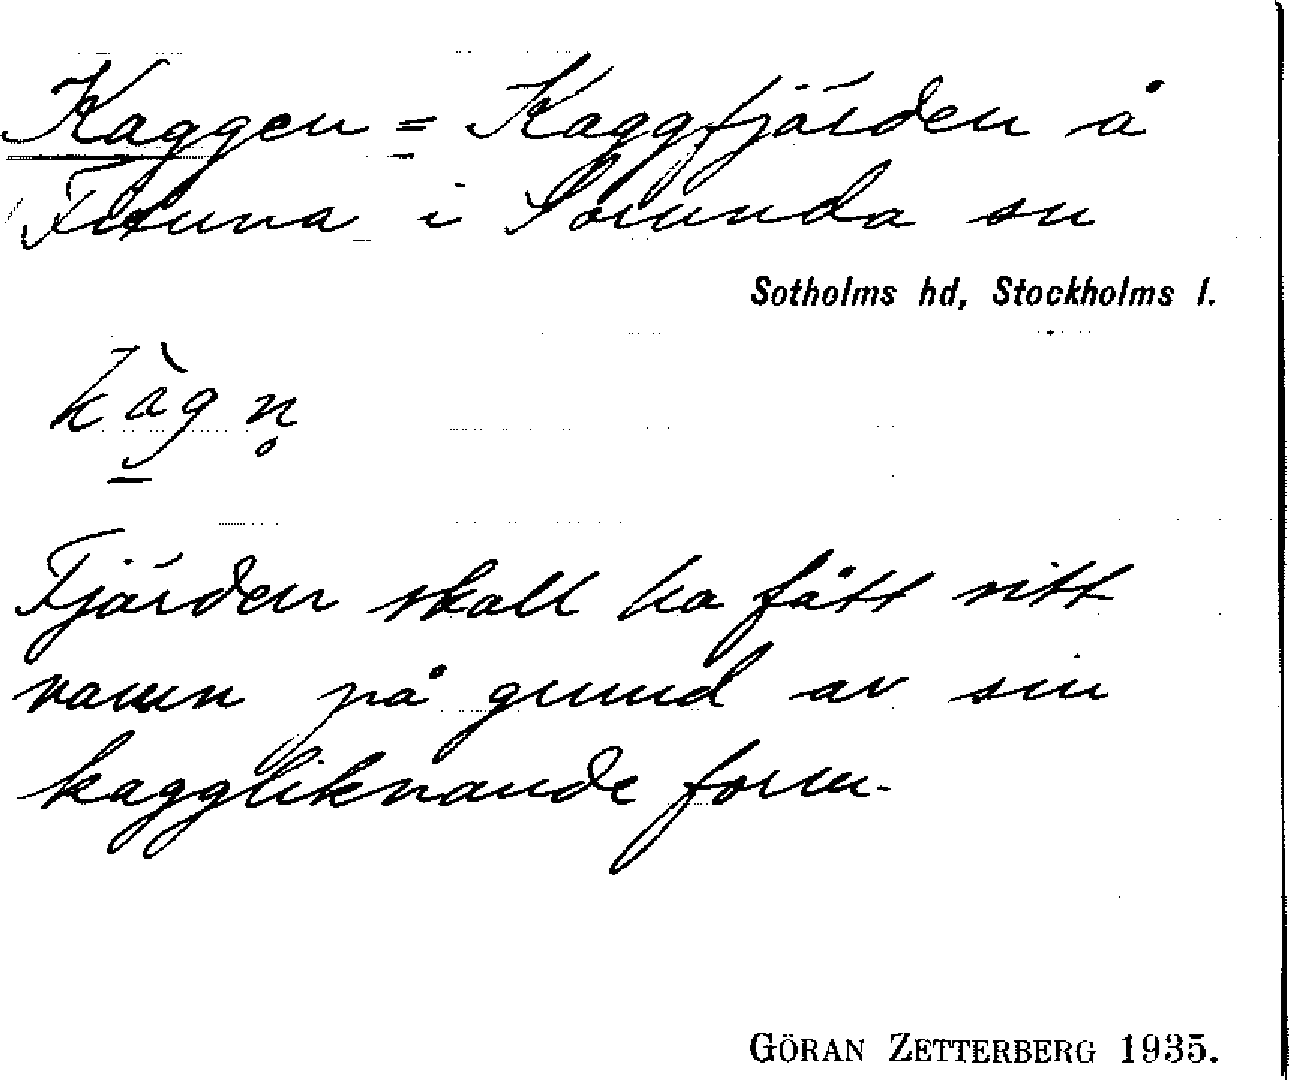 Kaggen = Kaggfjärden å
Fituna i Sorunda sn
Sotholms hd, Stockholms l.
kàgn̥
Fjärden skall ha fått sitt
namn på grund av sin
kaggliknande form.
GÖRAN ZETTERBERG 1935.